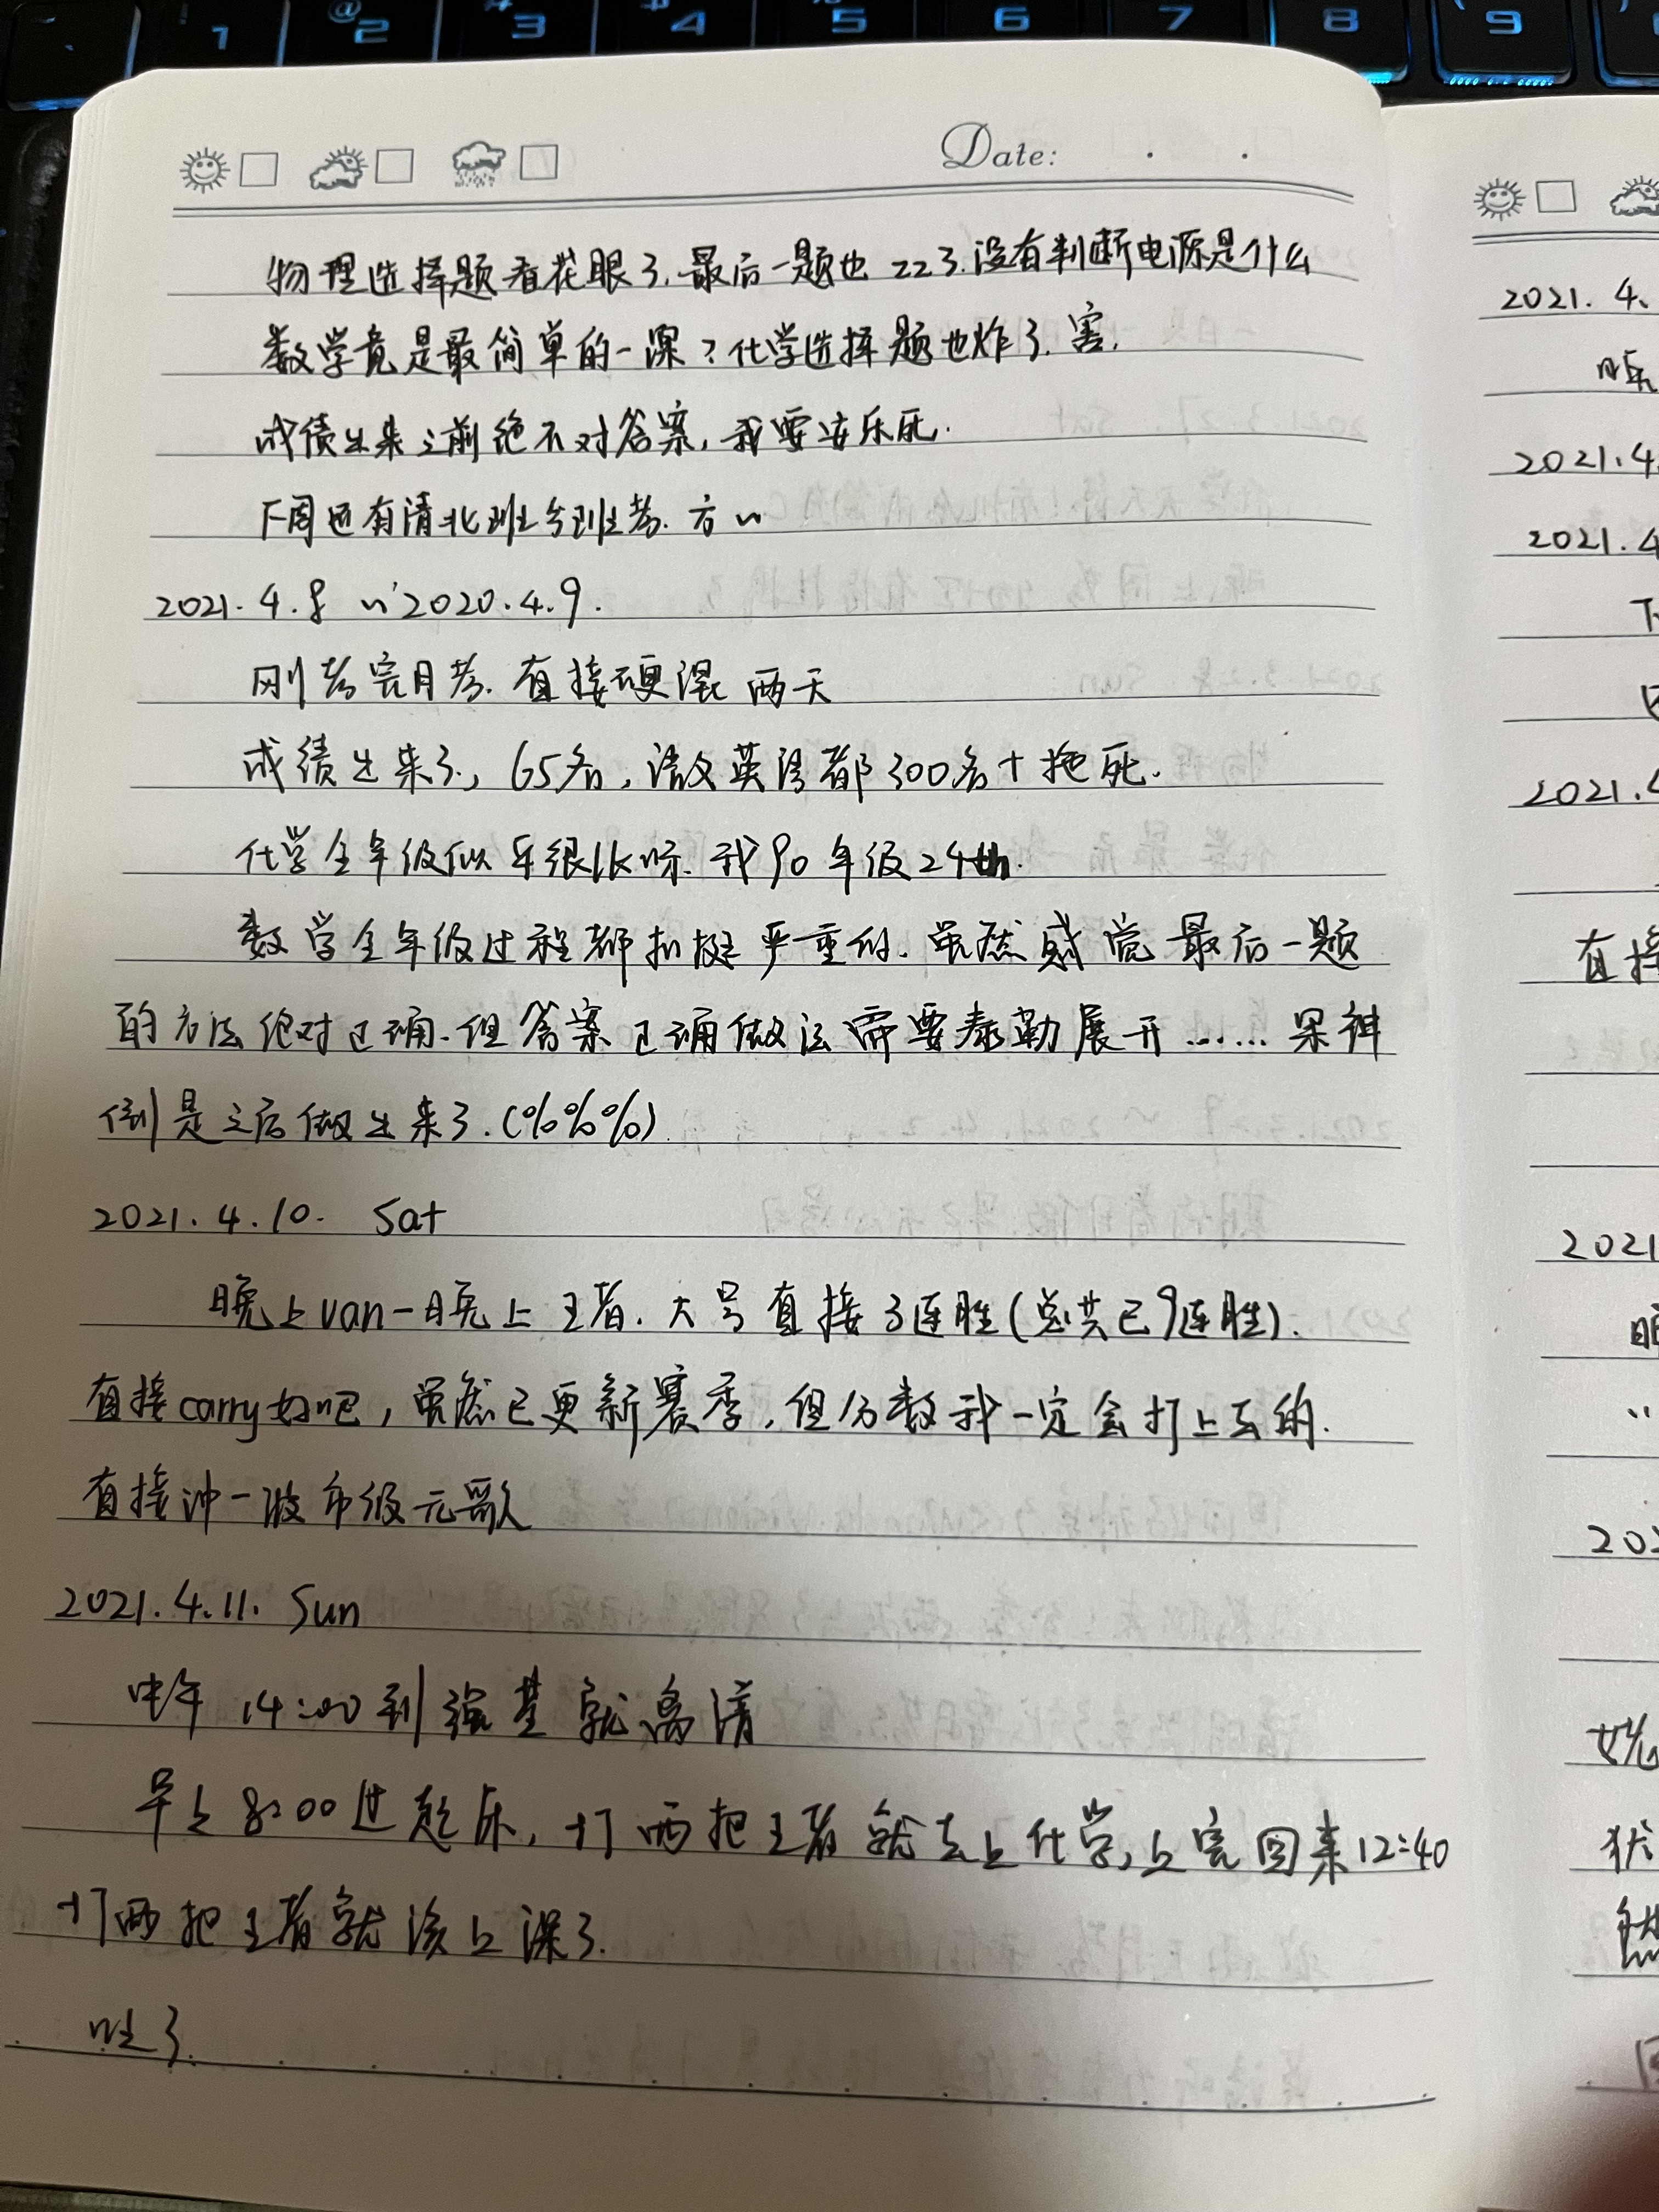 Date:
物理选择题看花眼了.最后一题也zz了.没有判断电源是什么
数学竟是最简单的一课?化学选择题也炸了.害.
成绩出来之前绝不对答案,我要安乐死.
下周还有清北班分班考.方~
2021.4.8 ~ 2020.4.9.
刚考完月考.直接硬混两天
成绩出来了,65名,语文英语都300名+拖死.
化学全年级似乎很 我90年级24th.
数学全年级过程都扣挺严重的.虽然感觉最后一题
的方法绝对正确.但答案正确做法需要泰勒展开......果神
倒是之后做出来了.(%%%)
2021.4.10. Sat
晚上van一晚上王者.大号直接3连胜(总共已9连胜).
直接carry好吧,虽然已更新赛季,但分数我一定会打上去的.
直接冲一波市级元歌
2021.4.11. Sun
中午14:00到强基就离清
早上8:00过起床,打两把王者就去上化学,上完回来12:40
打两把王者就该上课了.
哇了.
2021.4.
2021.4
2021.4
下
2021.4
直接
2021
202
犹